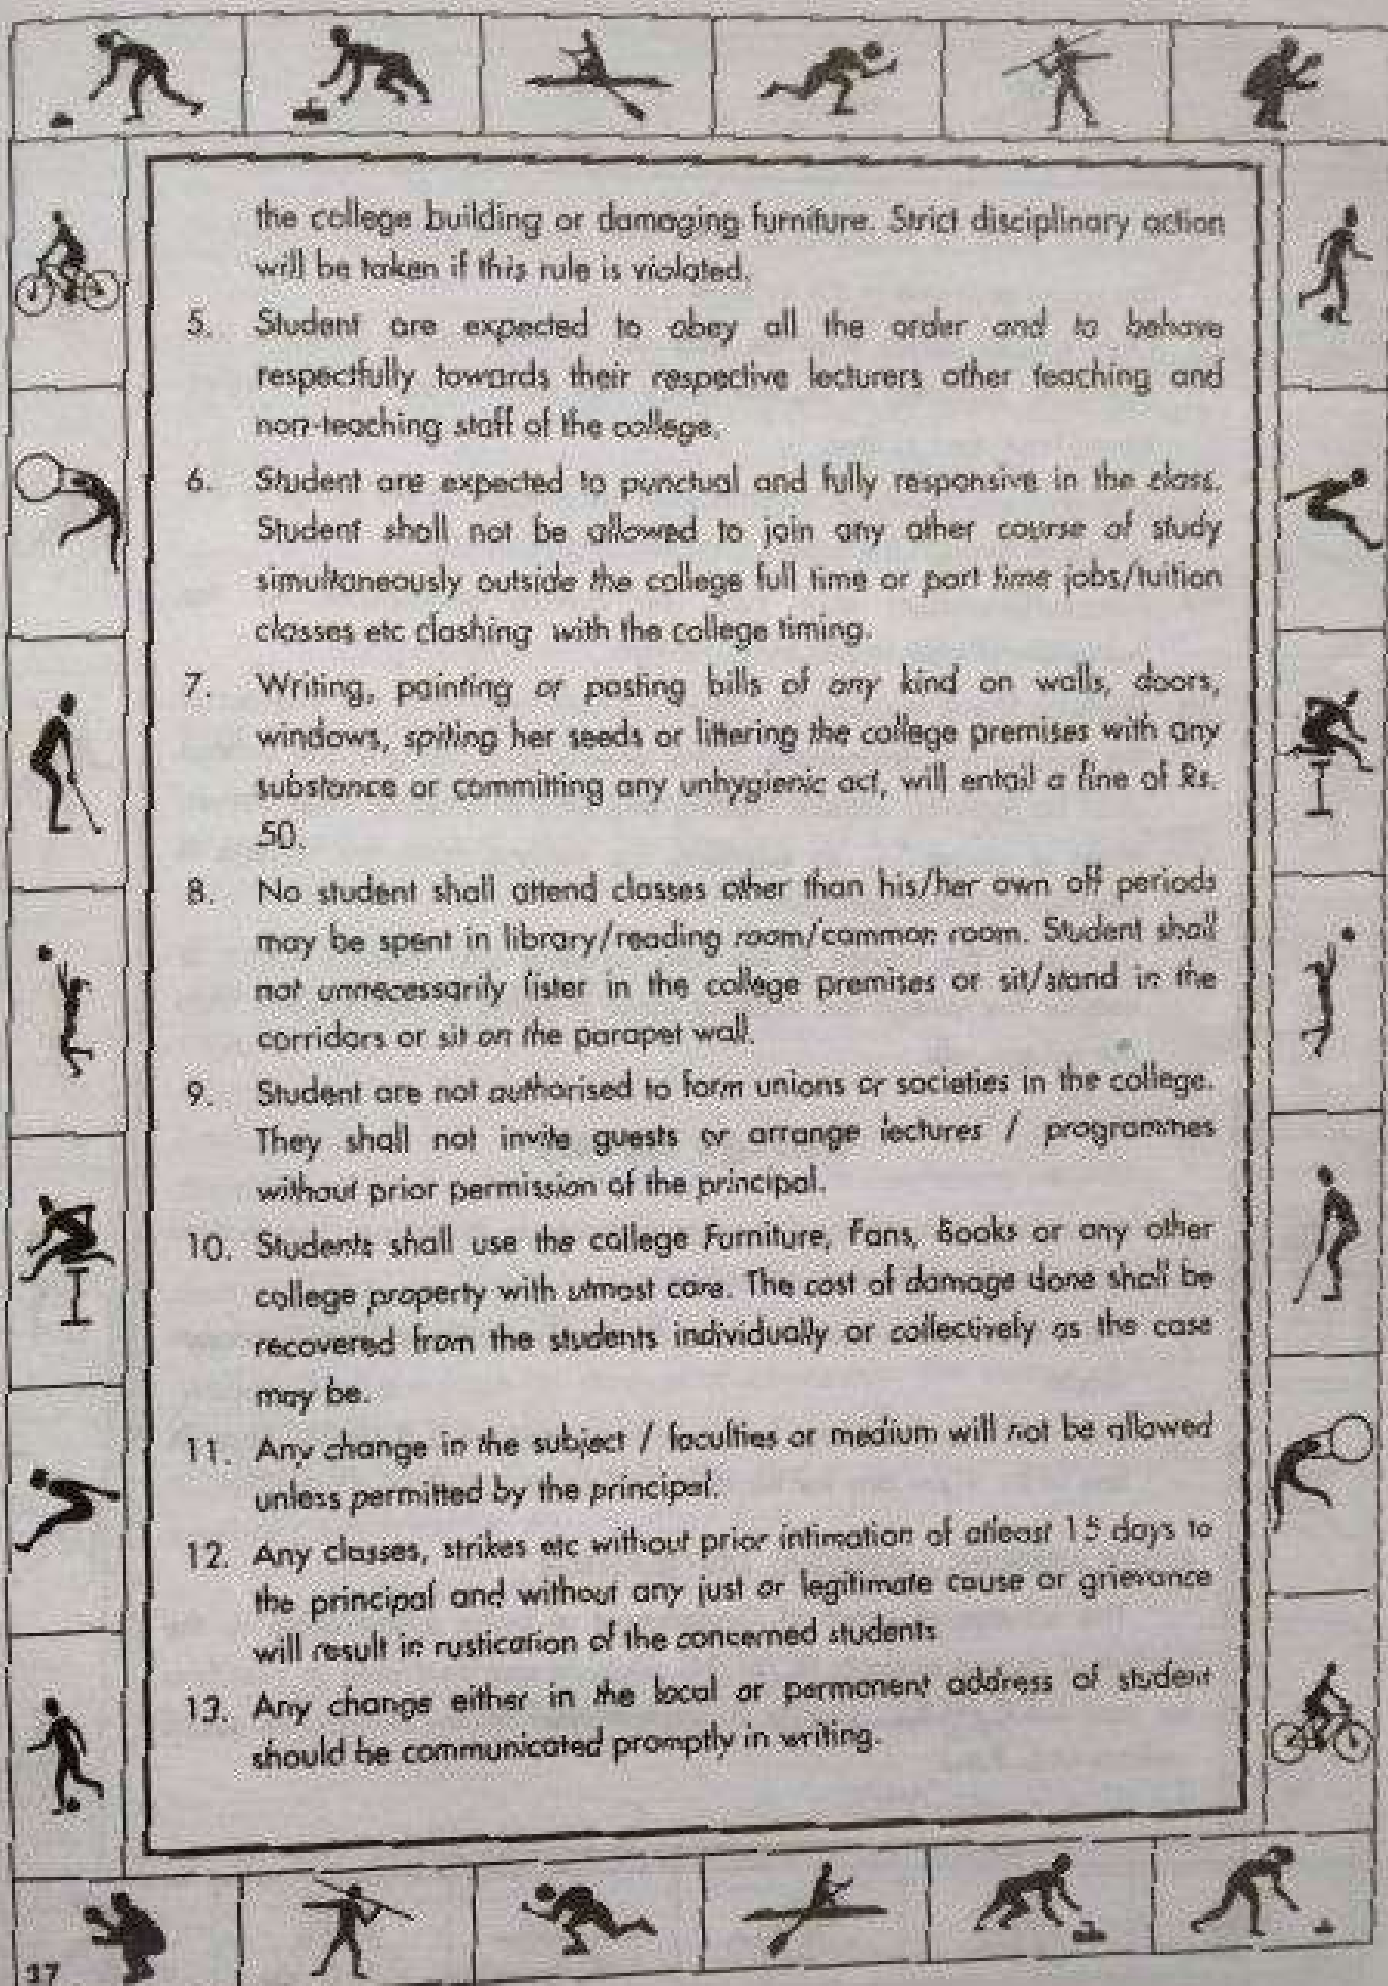 the college building or damaging furniture. Strict disciplinary action
will be taken if this rule is violated.
5. Student are expected to obey all the order and to behave
respectfully towards their respective lecturers other teaching and
non-teaching staff of the college.
6. Student are expected to punctual and fully responsive in the class.
Student shall not be allowed to join any other course of study
simultaneously outside the college full time or part time jobs/tuition
classes etc clashing with the college timing.
7. Writing, painting or posting bills of any kind on walls, doors,
windows, spiting her seeds or littering the college premises with any
substance or committing any unhygienic act, will entail a fine of Rs.
50.
8. No student shall attend classes other than his/her own off periods
may be spent in library/reading room/common room. Student shall
not unnecessarily lister in the college premises or sit/stand in the
corridors or sit on the parapet wall.
9. Student are not authorised to form unions or societies in the college.
They shall not invite guests or arrange lectures / programmes
without prior permission of the principal.
10. Students shall use the college Furniture, Fans, Books or any other
college property with utmost care. The cost of damage done shall be
recovered from the students individually or collectively as the case
may be.
11. Any change in the subject / faculties or medium will not be allowed
unless permitted by the principal.
12. Any classes, strikes etc without prior intimation of atleast 15 days to
the principal and without any just or legitimate cause or grievance
will result in rustication of the concerned students
13. Any change either in the local or permanent address of student
should be communicated promptly in writing.
37